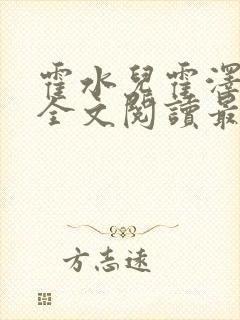 霍水兒霍澤
全文閱讀最
方志遠